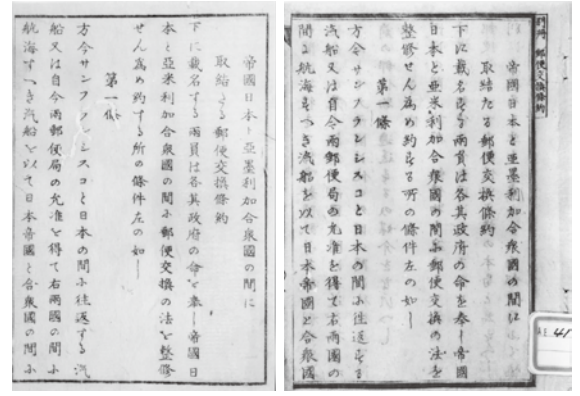 別冊 郵便交換條約
帝國日本と亜墨利加合衆國の間に
取結たる郵便交換條約
下に載名する両員は各其政府の命を奉し帝國
日本と亜米利加合衆國の間ふ郵便交換の法を
整修せん為め約する所の條件左の如し
第一條
方今サンフランシスコと日本の間ふ往返する
汽船又は自今両郵便局の允准を得て右両國の
間ふ航海すへき汽船を以て日本帝國と合衆國
帝國日本ト亞墨利加合衆國の間に
取結たる郵便交換條約
下に載名する両員は各其政府の命を奉し帝國日
本と亞米利加合衆國の間ふ郵便交換の法を整修
せん為め約する所の條件左の如し
第一條
方今サンフランシスコと日本の間ふ往返する汽
船又は自今両郵便局の允准を得て右両國の間ふ
航海すへき汽船を以て日本帝國と合衆國の間ふ